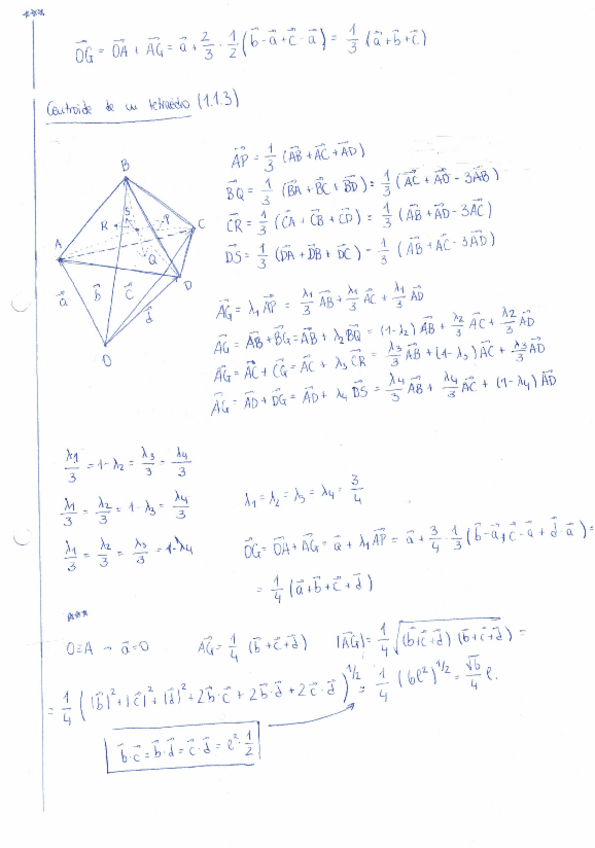 ***
OG⃗ = OA⃗ + AG⃗ = a⃗ + 2/3 · 1/2 (b⃗ - a⃗ + c⃗ - a⃗) = 1/3 (a⃗ + b⃗ + c⃗)
Centroide de un tetraedro (1.1.3)
AP⃗ = 1/3 (AB⃗ + AC⃗ + AD⃗)
BQ⃗ = 1/3 (BA⃗ + BC⃗ + BD⃗) = 1/3 (AC⃗ + AD⃗ - 3AB⃗)
CR⃗ = 1/3 (CA⃗ + CB⃗ + CD⃗) = 1/3 (AB⃗ + AD⃗ - 3AC⃗)
DS⃗ = 1/3 (DA⃗ + DB⃗ + DC⃗) = 1/3 (AB⃗ + AC⃗ - 3AD⃗)
B
S
R
P
C
A
Q
D
a⃗ b⃗ c⃗ d⃗
O
AG⃗ = λ1 AP⃗ = λ1/3 AB⃗ + λ1/3 AC⃗ + λ1/3 AD⃗
AG⃗ = AB⃗ + BG⃗ = AB⃗ + λ2 BQ⃗ = (1-λ2) AB⃗ + λ2/3 AC⃗ + λ2/3 AD⃗
AG⃗ = AC⃗ + CG⃗ = AC⃗ + λ3 CR⃗ = λ3/3 AB⃗ + (1-λ3) AC⃗ + λ3/3 AD⃗
AG⃗ = AD⃗ + DG⃗ = AD⃗ + λ4 DS⃗ = λ4/3 AB⃗ + λ4/3 AC⃗ + (1-λ4) AD⃗
λ1/3 = 1-λ2 = λ3/3 = λ4/3
λ1/3 = λ2/3 = 1-λ3 = λ4/3
λ1 = λ2 = λ3 = λ4 = 3/4
λ1/3 = λ2/3 = λ3/3 = 1-λ4
OG⃗ = OA⃗ + AG⃗ = a⃗ + λ1 AP⃗ = a⃗ + 3/4 · 1/3 (b⃗ - a⃗ + c⃗ - a⃗ + d⃗ - a⃗) =
= 1/4 (a⃗ + b⃗ + c⃗ + d⃗)
***
O≡A → a⃗ = 0 AG⃗ = 1/4 (b⃗ + c⃗ + d⃗) |AG⃗| = 1/4 √((b⃗ + c⃗ + d⃗) · (b⃗ + c⃗ + d⃗)) =
= 1/4 (|b⃗|² + |c⃗|² + |d⃗|² + 2b⃗·c⃗ + 2b⃗·d⃗ + 2c⃗·d⃗)^1/2 = 1/4 (6l²)^1/2 = √6/4 l.
b⃗·c⃗ = b⃗·d⃗ = c⃗·d⃗ = l² · 1/2